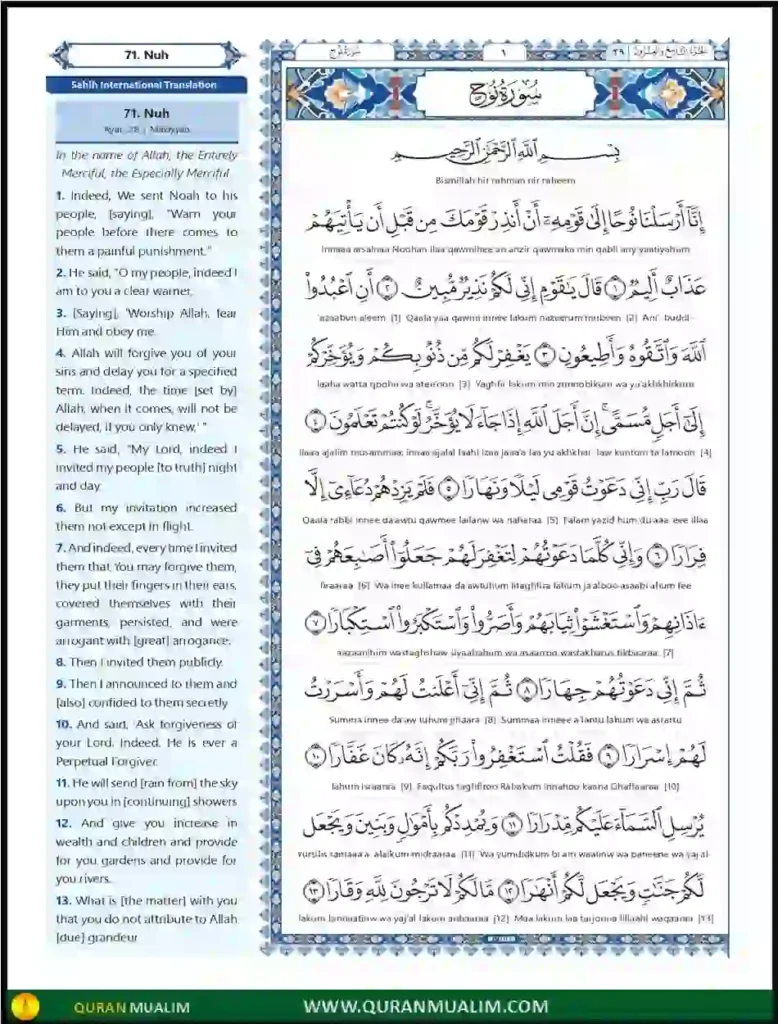 71. Nuh
Sahih International Translation
71. Nuh
In the name of Allah, the Entirely
Merciful, the Especially Merciful
1. Indeed, We sent Noah to his
people, [saying], "Warn your
people before there comes to
them a painful punishment."
2. He said, "O my people, indeed I
am to you a clear warner,
3. [Saying], 'Worship Allah, fear
Him and obey me.
4. Allah will forgive you of your
sins and delay you for a specified
term. Indeed, the time [set by]
Allah, when it comes, will not be
delayed, if you only knew.' "
5. He said, "My Lord, indeed I
invited my people [to truth] night
and day.
6. But my invitation increased
them not except in flight.
7. And indeed, every time I invited
them that You may forgive them,
they put their fingers in their ears,
covered themselves with their
garments, persisted, and were
arrogant with [great] arrogance.
8. Then I invited them publicly.
9. Then I announced to them and
[also] confided to them secretly
10. And said, 'Ask forgiveness of
your Lord. Indeed, He is ever a
Perpetual Forgiver.
11. He will send [rain from] the sky
upon you in [continuing] showers
12. And give you increase in
wealth and children and provide
for you gardens and provide for
you rivers.
13. What is [the matter] with you
that you do not attribute to Allah
[due] grandeur
سُورَةُ نُوحٍ ١ ٢٩
سُورَةُ نُوحٍ
بِسْمِ اللَّهِ الرَّحْمَٰنِ الرَّحِيمِ
Bismillah hir rahman nir raheem
إِنَّا أَرْسَلْنَا نُوحًا إِلَىٰ قَوْمِهِ أَنْ أَنذِرْ قَوْمَكَ مِن قَبْلِ أَن يَأْتِيَهُمْ
Innaaa arsalnaa Noohan ilaa qawmihee an anzir qawmaka min qabli any yaatiyahum
عَذَابٌ أَلِيمٌ ١ قَالَ يَا قَوْمِ إِنِّي لَكُمْ نَذِيرٌ مُّبِينٌ ٢ أَنِ اعْبُدُوا
'azaabun aleem [1] Qaala yaa qawmi innee lakum nazeerum mubeen [2] Ani'
اللَّهَ وَاتَّقُوهُ وَأَطِيعُونِ ٣ يَغْفِرْ لَكُم مِّن ذُنُوبِكُمْ وَيُؤَخِّرْكُمْ
laaha watta qoohu wa atee'oon [3] Yaghfir lakum min zunoobikum wa yu'akhkhirkum
إِلَىٰ أَجَلٍ مُّسَمًّى إِنَّ أَجَلَ اللَّهِ إِذَا جَاءَ لَا يُؤَخَّرُ لَوْ كُنتُمْ تَعْلَمُونَ ٤
ilaaa ajalim musammaa; innaa ajalal laahi izaa jaaa'a laa yu'akhkhar law kuntum ta'lamoon [4]
قَالَ رَبِّ إِنِّي دَعَوْتُ قَوْمِي لَيْلًا وَنَهَارًا ٥ فَلَمْ يَزِدْهُمْ دُعَائِي إِلَّا
Qaala rabbi innee da'awtu qawmee lailanw wa naharaa [5] Falam yazid hum du'aaa eee illaa
فِرَارًا ٦ وَإِنِّي كُلَّمَا دَعَوْتُهُمْ لِتَغْفِرَ لَهُمْ جَعَلُوا أَصَابِعَهُمْ فِي
firaaraa [6] Wa inee kullamaa da'awtuhum litaghfira lahum ja'aloo asaabi'ahum fee
ءَاذَانِهِمْ وَاسْتَغْشَوْا ثِيَابَهُمْ وَأَصَرُّوا وَاسْتَكْبَرُوا اسْتِكْبَارًا ٧
aazaanihim wastaghshaw siyaabahum wa asarroo wastakbarus tikbaaraa [7]
ثُمَّ إِنِّي دَعَوْتُهُمْ جِهَارًا ٨ ثُمَّ إِنِّي أَعْلَنتُ لَهُمْ وَأَسْرَرْتُ
Summa innee da'aw tuhum jihaara [8] Summaa inneee a'lantu lahum wa asrartu
لَهُمْ إِسْرَارًا ٩ فَقُلْتُ اسْتَغْفِرُوا رَبَّكُمْ إِنَّهُ كَانَ غَفَّارًا ١٠
lahum israaraa [9] Faqultus taghfiroo Rabakum innahoo kaana Ghaffaaraa [10]
يُرْسِلِ السَّمَاءَ عَلَيْكُم مِّدْرَارًا ١١ وَيُمْدِدْكُم بِأَمْوَالٍ وَبَنِينَ وَيَجْعَل
yursilis samaaa'a 'alaikum midraaraa [11] Wa yumdidkum bi am waalinw wa baneena wa yaj'al
لَّكُمْ جَنَّاتٍ وَيَجْعَل لَّكُمْ أَنْهَارًا ١٢ مَّا لَكُمْ لَا تَرْجُونَ لِلَّهِ وَقَارًا ١٣
lakum Jannaatinw wa yaj'al lakum anhaaraa [12] Maa lakum laa tarjoona lillaahi waqaaraa [13]
QURAN MUALIM
WWW.QURANMUALIM.COM